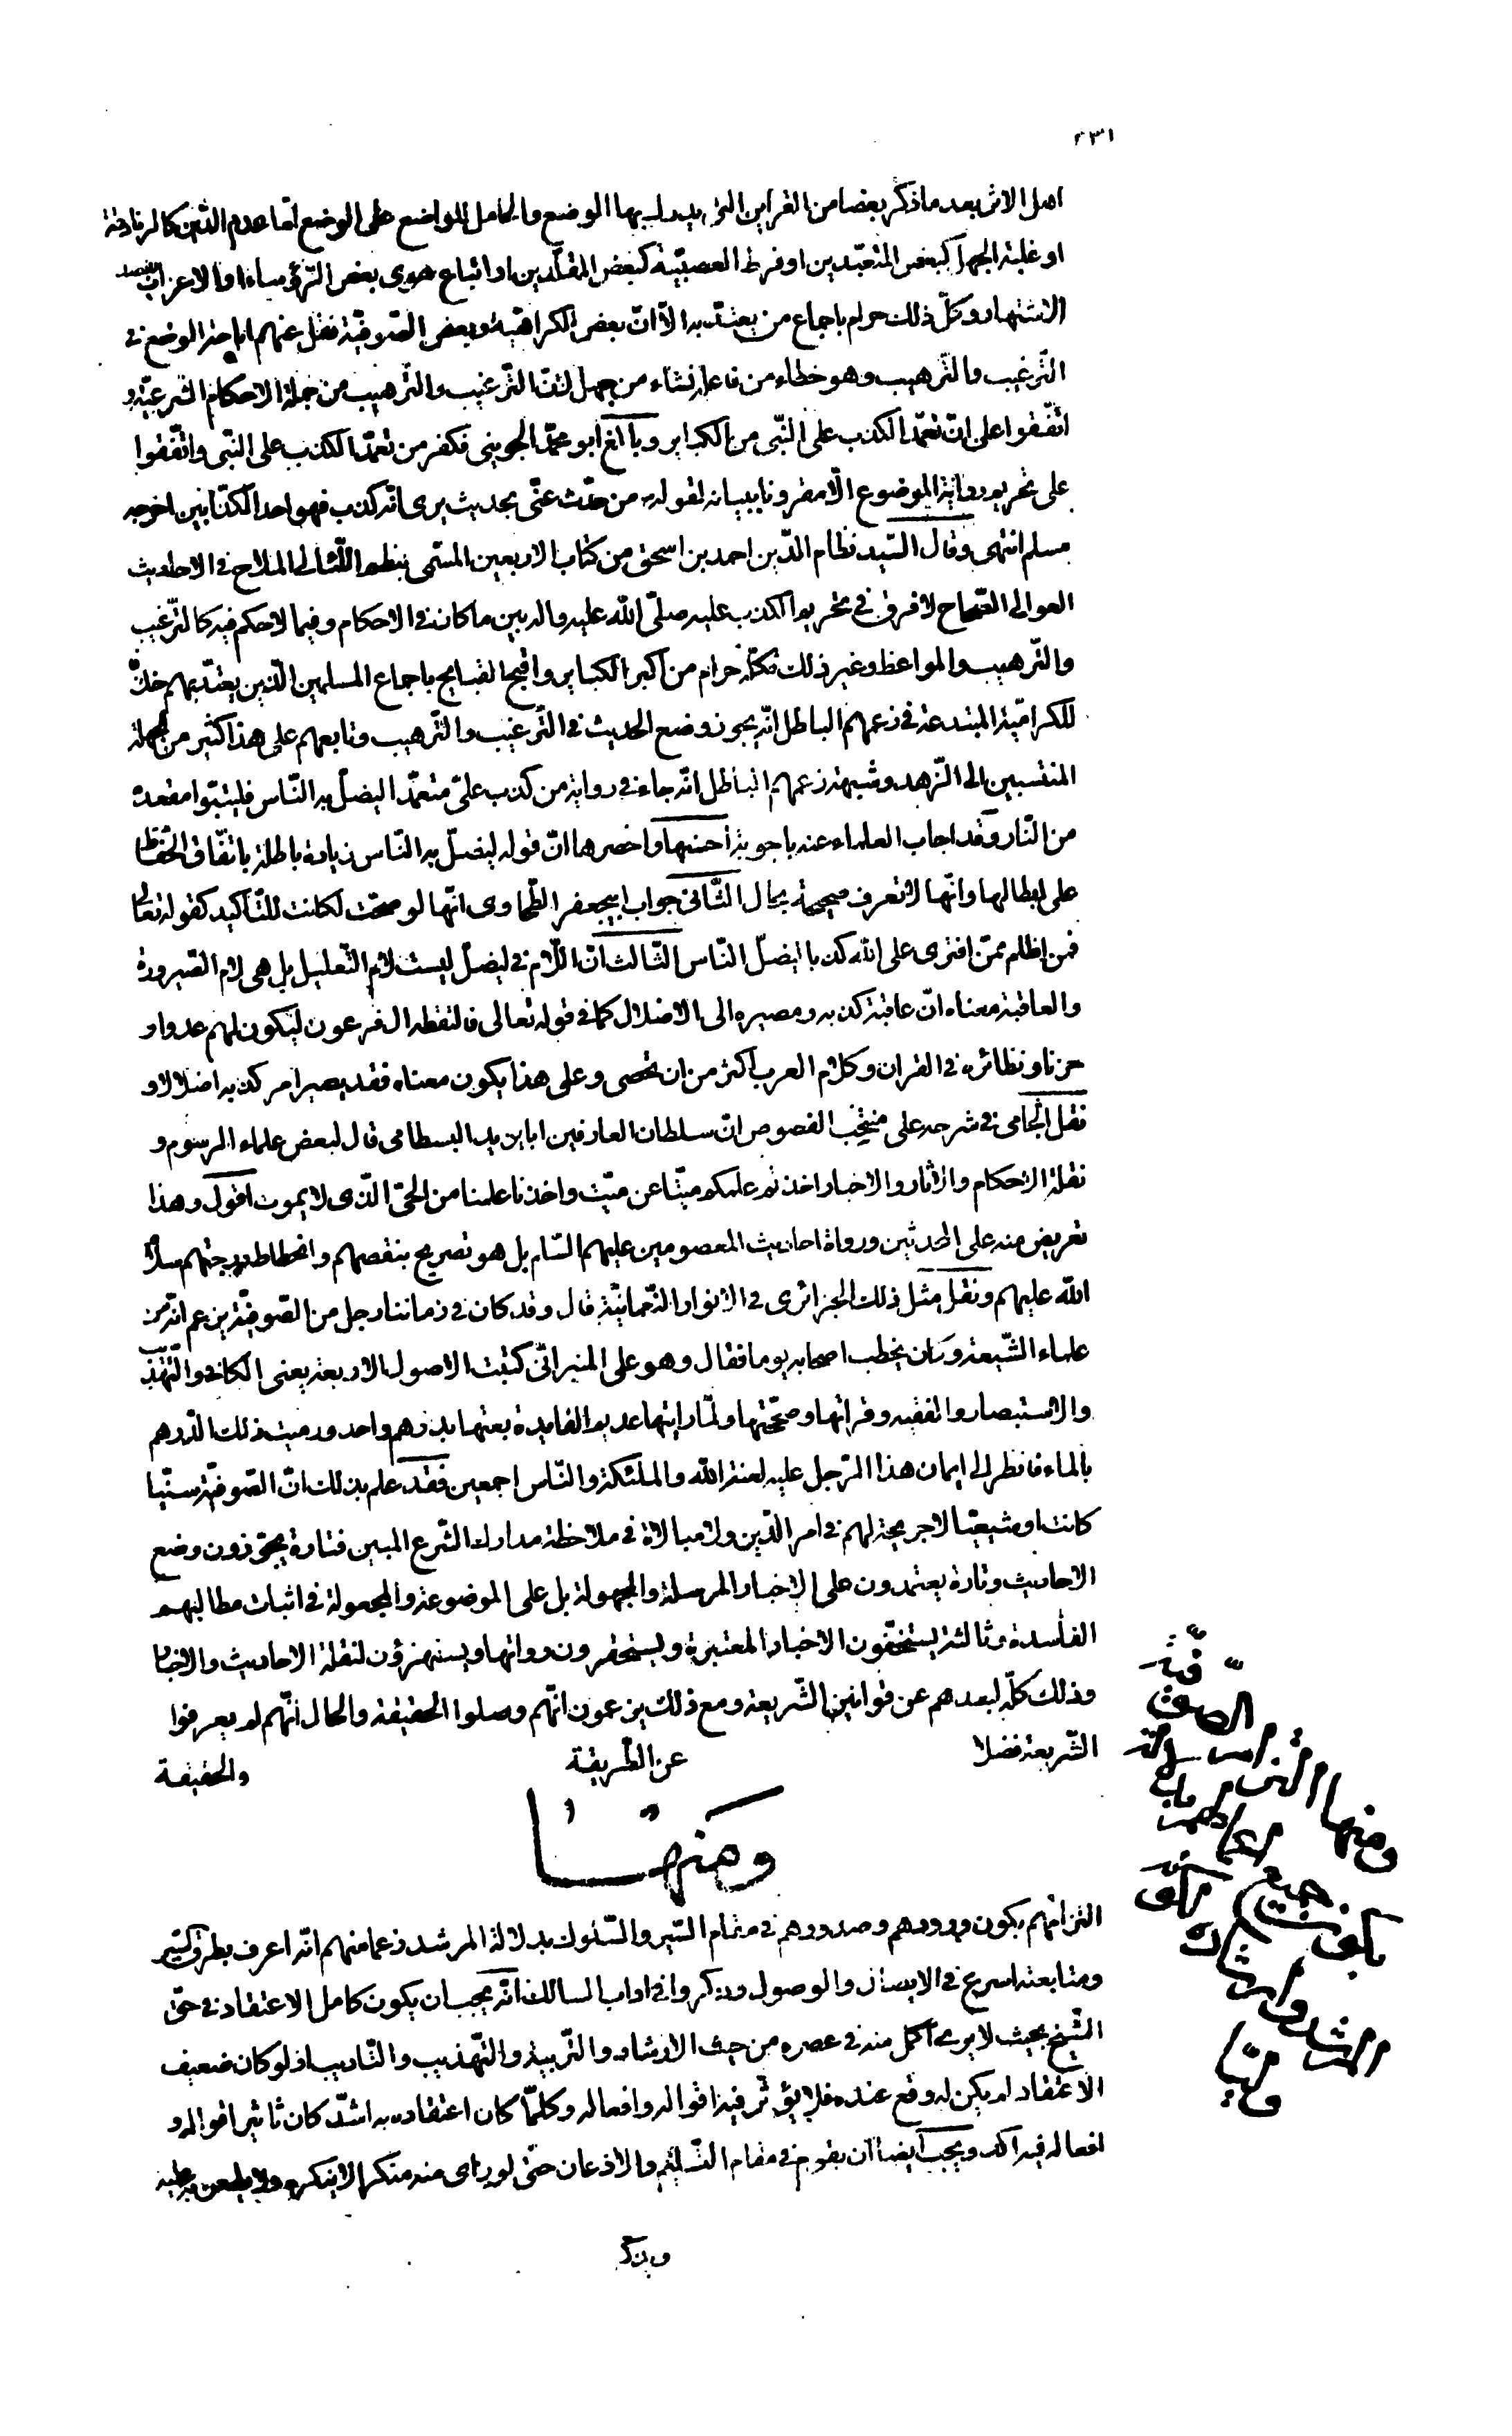 ٢٣١
اهل الاثر بعد ما ذكر بعضا من القراين التى يدرك بها الوضع والحامل للواضع على الوضع امّا عدم الدّين كالزنادقة
او غلبة الجهل كبعض المتعبّدين او فرط العصبيّة كبعض المقلّدين او اتباع هوى بعض الرّؤساء او الاغراب لقصد
الاشتهار وكلّ ذلك حرام باجماع من يعتدّ به الّا انّ بعض الكراميّة وبعض الصّوفيّة نقل عنهم اباحة الوضع فى
التّرغيب والتّرهيب وهو خطاء من فاعله نشاء من جهل لانّ التّرغيب والتّرهيب من جملة الاحكام الشّرعيّة و
اتّفقوا على انّ تعمّد الكذب على النّبى من الكباير وبالغ ابو محمّد الجوينى فكفر من تعمّد الكذب على النّبى واتّفقوا
على تحريم رواية الموضوع الّا مقرونا ببيانه لقوله من حدّث عنّى بحديث يرى انّه كذب فهو احد الكذّابين اخرجه
مسلم انتهى وقال السّيد نظام الدّين احمد بن اسحق من كتاب الاربعين المسمّى بنظم اللّئالى الملاح فى الاحاديث
العوالى الصّحاح لا فرق فى تحريم الكذب عليه صلّى الله عليه واله بين ما كان فى الاحكام وفيما لا حكم فيه كالتّرغيب
والتّرهيب والمواعظ وغير ذلك فكلّه حرام من اكبر الكباير واقبح القبايح باجماع المسلمين الّذين يعتدّ بهم خلافا
للكراميّة المبتدعة فى زعمهم الباطل انّه يجوز وضع الحديث فى التّرغيب والتّرهيب وتابعهم على هذا كثير من الجهلة
المنتسبين الى الزّهد وشبهة زعمهم الباطل انّه جاء فى رواية من كذب علىّ متعمّدا ليضلّ به النّاس فليتبوّا مقعده
من النّار وقد اجاب العلماء عنه باجوبة احسنها واخصرها انّ قوله ليضلّ به النّاس زيادة باطلة باتّفاق الحفّاظ
على ابطالها وانّها لا تعرف صحيحة بحال الثّانى جواب ابيجعفر الطّحاوى انّها لو صحّت لكانت للتّاكيد كقوله تعالى
فمن اظلم ممّن افترى على الله كذبا ليضلّ النّاس الثّالث انّ اللّام فى ليضلّ ليست لام التّعليل بل هى لام الصّيرورة
والعاقبة معناه انّ عاقبة كذبه ومصيره الى الاضلال كما فى قوله تعالى فالتقطه ال فرعون ليكون لهم عدوا و
حزنا ونظائره فى القران وكلام العرب اكثر من ان تحصى وعلى هذا يكون معناه فقد يصير امر كذبه اضلالا و
نقل الجامى فى شرحه على منتخب الفصوص انّ سلطان العارفين ابا يزيد البسطامى قال لبعض علماء الرسوم و
نقلة الاحكام والاثار والاخبار اخذتم علمكم ميّتا عن ميّت واخذنا علمنا من الحىّ الّذى لا يموت اقول وهذا
تعريض منه على المحدّثين ورواة احاديث المعصومين عليهم السّلام بل هو تصريح بنقصهم وانحطاط درجتهم سلام
الله عليهم ونقل مثل ذلك الجزائرى فى الانوار النّعمانيّة قال وقد كان فى زماننا رجل من الصّوفيّة يزعم انّه من
علماء الشّيعة وكان يخطب اصحابه يوما فقال وهو على المنبر انّى كتبت الاصول الاربعة يعنى الكافى والتّهذيب
والاستبصار والفقيه وقراتها وصحّحتها ولمّا رايتها عديم الفايدة بعتها بدرهم واحد ورميت ذلك الدّرهم
بالماء فانظر الى ايمان هذا الرّجل عليه لعنة الله والملئكة والنّاس اجمعين فقد علم بذلك انّ الصّوفيّة سنّيا
كانت او شيعيّا لا حريجة لهم فى امر الدّين ولا مبالاة فى ملاحظة مدارك الشّرع المبين فتارة يجوّزون وضع
الاحاديث وتارة يعتمدون على الاخبار المرسلة والمجهولة بل على الموضوعة والمجعولة فى اثبات مطالبهم
الفاسدة وثالثة يستخفّون الاخبار المعتبرة ويستحقرون رواتها ويستهزؤن لنقلة الاحاديث والاخبار
وذلك كلّه لبعدهم عن قوانين الشّريعة ومع ذلك يزعمون انّهم وصلوا الحقيقة والحال انّهم لم يعرفوا
الشّريعة فضلا عن الطّريقة والحقيقة
ومنها
التزامهم بكون ورودهم وصدورهم فى مقام السّير والسّلوك بدلالة المرشد زعما منهم انّه اعرف بطرق السّير
ومتابعته اسرع فى الايصال والوصول وذكروا فى اداب السالك انّه يجب ان يكون كامل الاعتقاد فى حقّ
الشّيخ بحيث لا يرى اكمل منه فى عصره من حيث الارشاد والتّربية والتّهذيب والتّاديب اذ لو كان ضعيف
الاعتقاد لم يكن له وقع عنده فلا يؤثّر فيه اقواله وافعاله وكلّما كان اعتقاده به اشدّ كان تاثير اقواله و
افعاله فيه اكد ويجب ايضا ان يقوم فى مقام التّسليم والاذعان حتّى لو راى منه منكرا لا ينكره ولا يطعن عليه
ومنها التزام الصوفيّة
جميع
المرشد